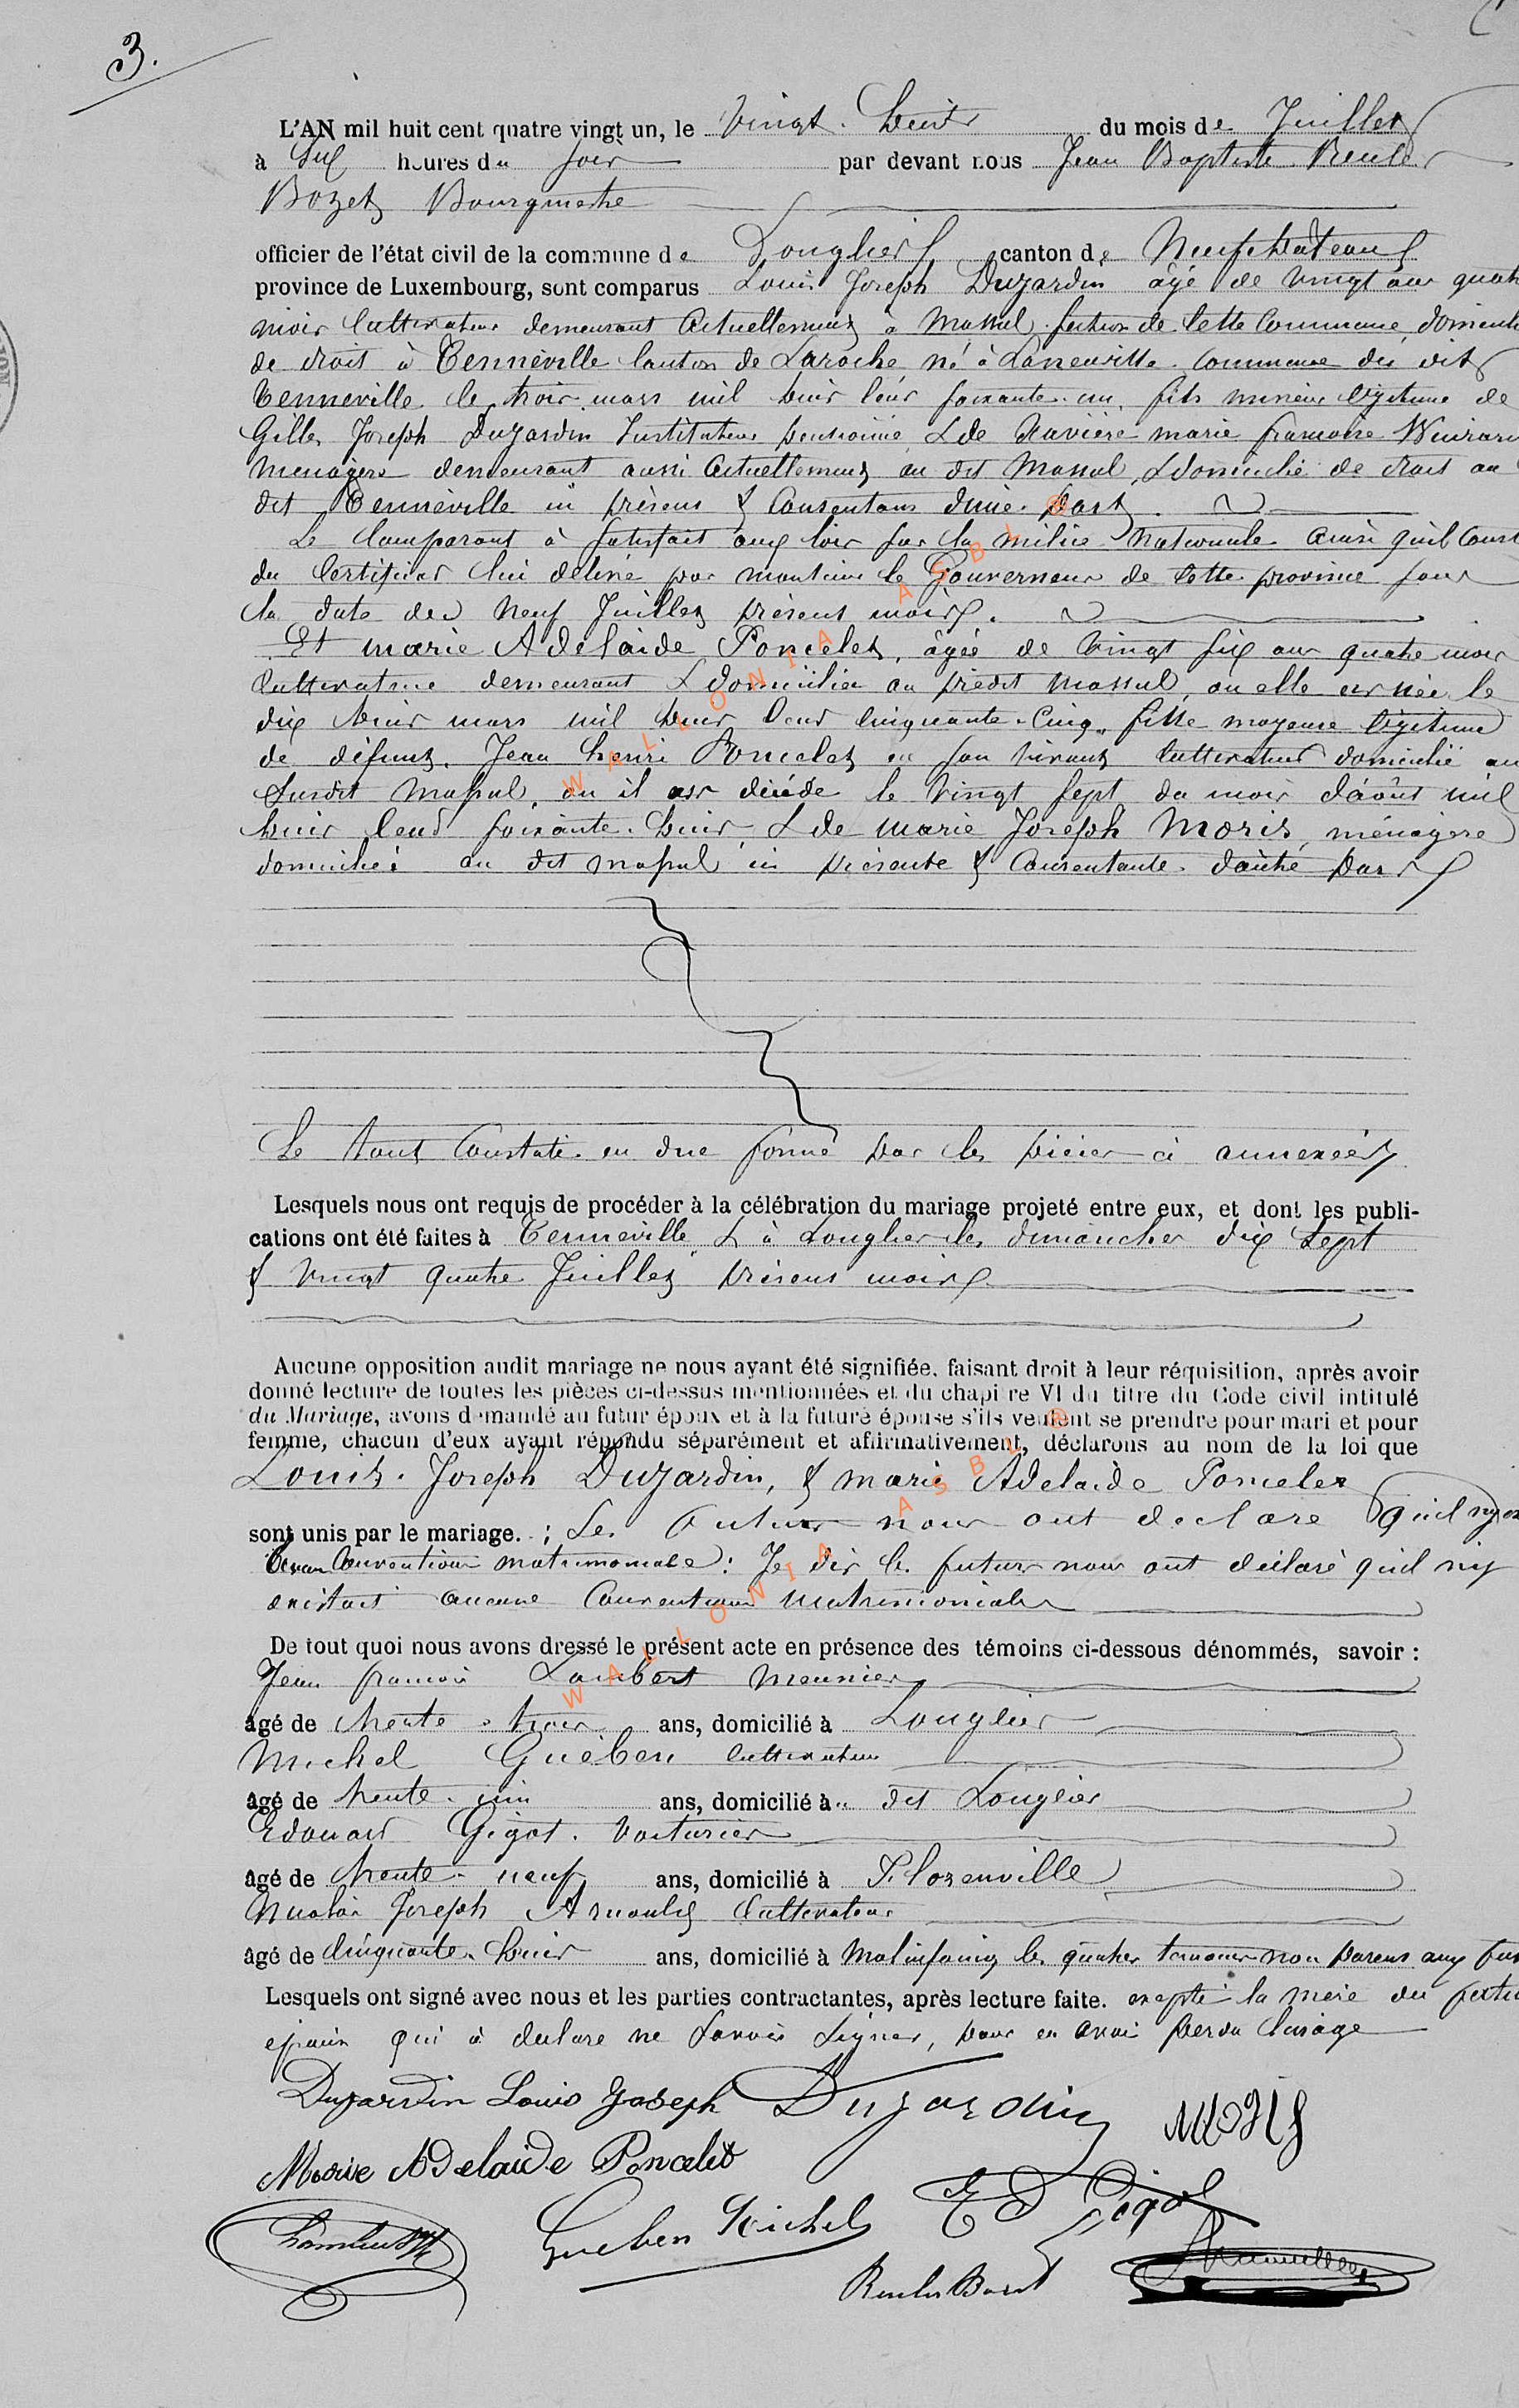 3.
L'AN mil huit cent quatre vingt un, le Vingt-huit du mois de Juillet
à Six heures du Soir par devant nous Jean Baptiste Reuler
Bozet Bourgmestre
officier de l'état civil de la commune de Longlier canton de Neufchâteau
province de Luxembourg, sont comparus Louis Joseph Dujardin âgé de vingt ans quatre
mois Cultivateur demeurant Actuellement à Massul section de Cette Commune, domicilié
de droit à Tenneville Canton de Laroche né à Laneuville Commune du dit
Tenneville le trois mars mil huit Cent soixante-un, fils mineur légitime de
Gilles Joseph Dujardin Instituteur pensionné & de Xavière marie françoise
Menagère demeurant aussi Actuellement au dit Massul, & domicilié de droit au
dit Tenneville ici présens & Consentans d'une part.
Le Comparant à Satisfait aux lois sur la milice Nationale Ainsi qu'il Conste
du Certificat lui délivré par monsieur le Gouverneur de Cette province sous
la date du Neuf Juillet présent mois.
Et marie Adelaïde Poncelet, âgée de Vingt six ans quatre mois
Cultivatrice demeurant & domiciliée au prédit Massul, où elle est née le
dix huit mars mil huit Cent Cinquante-Cinq, fille mageure légitime
de défunt Jean henri Poncelet en son vivant Cultivateur domicilié au
Susdit Massul, où il est décédé le Vingt Sept du mois d'août mil
huit Cent soixante-huit, & de marie Joseph Moris, ménagère
domiciliée au dit Massul ici présente & Consentante d'autre part
Le tout Constaté en due forme par les pièces ci annexées
Lesquels nous ont requis de procéder à la célébration du mariage projeté entre eux, et dont les publi-
cations ont été faites à Tenneville & à Longlier les dimanches dix Sept
& Vingt quatre Juillet présent mois
Aucune opposition audit mariage ne nous ayant été signifiée, faisant droit à leur réquisition, après avoir
donné lecture de toutes les pièces ci-dessus mentionnées et du chapitre VI du titre du Code civil intitulé
du Mariage, avons demandé au futur époux et à la future épouse s'ils veulent se prendre pour mari et pour
femme, chacun d'eux ayant répondu séparément et affirmativement, déclarons au nom de la loi que
Louis Joseph Dujardin, & marie Adelaïde Poncelet
sont unis par le mariage. ; Les futurs nous ont declare quil ny
Convention matrimoniale : Je dis les futurs nous ont déclaré quil n'y
existait aucune Convention Matrimoniale
De tout quoi nous avons dressé le présent acte en présence des témoins ci-dessous dénommés, savoir :
Jean françois Lambert Meunier
âgé de trente-trois ans, domicilié à Longlier
Michel Guèben Cultivateur
âgé de trente-un ans, domicilié à dit Longlier
Edouard Gigot. Voiturier
âgé de trente-neuf ans, domicilié à Florenville
Nicolas Joseph Arnould Cultivateur
âgé de Cinquante-huit ans, domicilié à Molinfaing les quatres temoins non parens aux
Lesquels ont signé avec nous et les parties contractantes, après lecture faite. excepté la mère du futur
epoux qui à declare ne Savoir Signer, pour en avoir perdu l'usage
Dujardin Louis Joseph Dujardin Moris
Marie Adelaide Poncelet
Lambert Gueben Michel Ed Gigot
Reuler Bozet
WALLONIA ASBL ©
WALLONIA ASBL ©